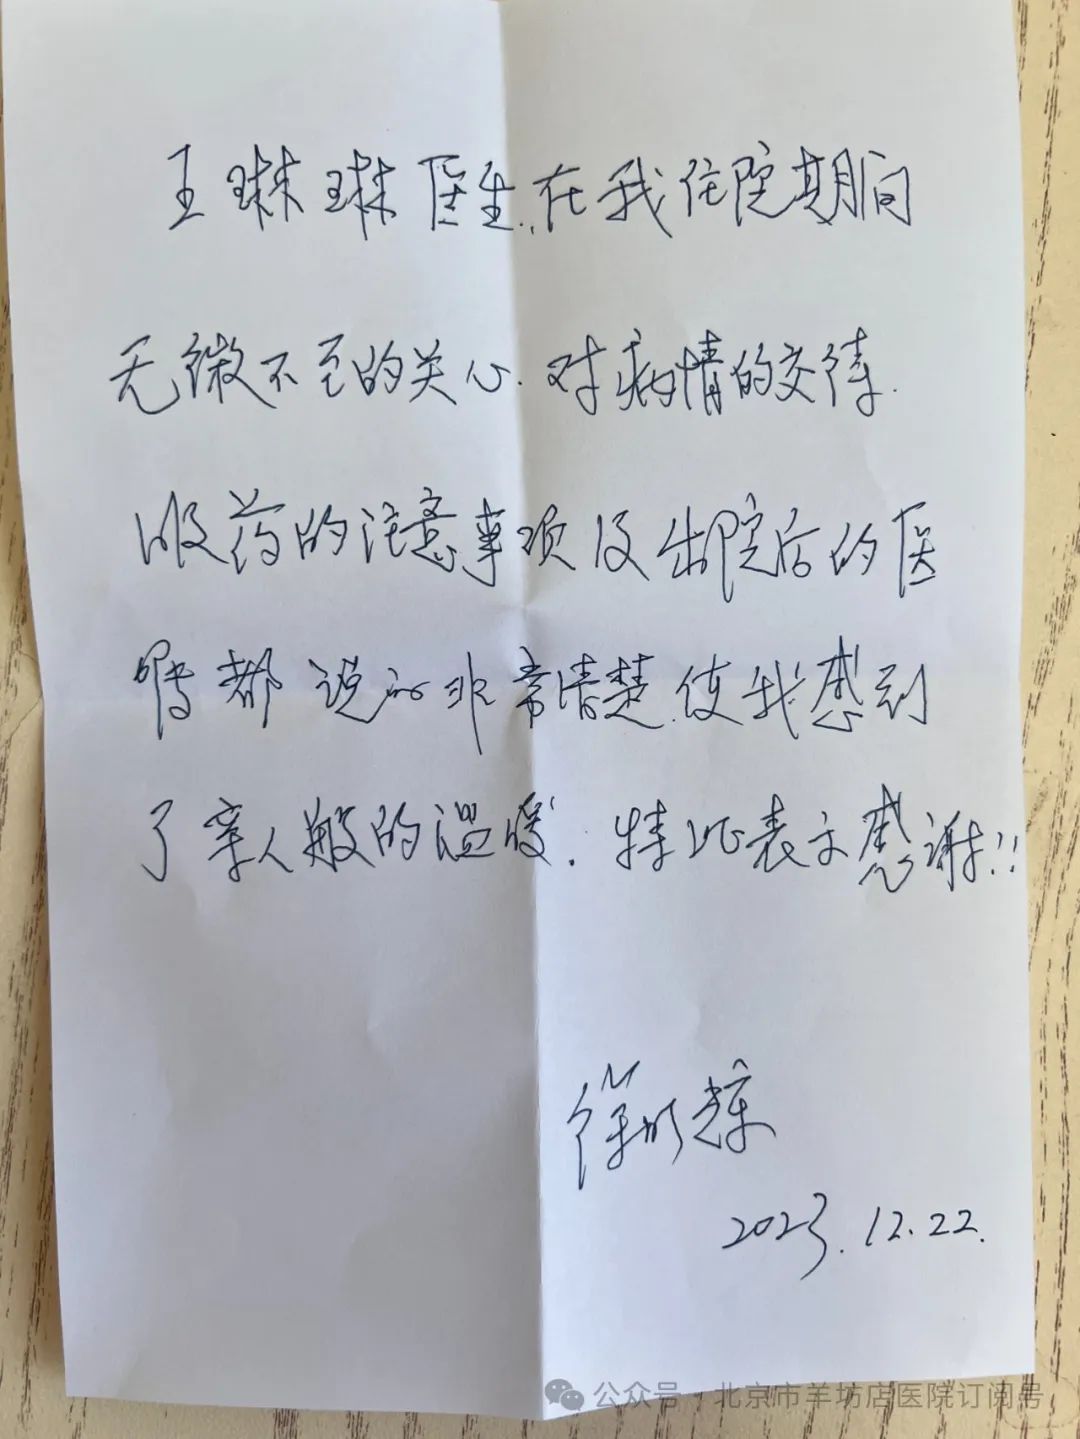 王琳琳医生,在我住院期间
无微不至的关心.对病情的交待.
服药的注意事项及出院后的医
嘱都说的非常清楚.使我感到
了亲人般的温暖.特此表示感谢!!
徐明
2023.12.22.
公众号·北京市羊坊店医院订阅号